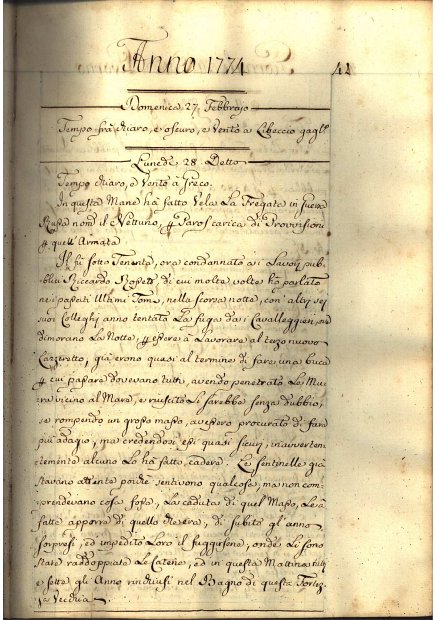 Anno 1774
42
Domenica 27 Febbrajo
Tempo frà chiaro, e oscuro, e Vento a Libeccio gagl.
Lunedì 28 Detto
Tempo chiaro, e Vento à Greco.
In questa Mane hà fatto Vela La Fregata in Guerra
Russa nom. il Nettuno, p Paros carica di Provvisioni
p quell'Armata
Il fù sotto Tenente, ora condannato ai Lavori pub
blici Riccardo di cui molte volte hò parlato
nei passati Tomi, nella scorsa notte, con altri sei
suoi Colleghi anno tentata La fuga dai Cavalleggieri, ove
dimorano La Notte, p essere à Lavorare al terzo nuovo
Lazzeretto, già erono quasi al termine di fare una buca
p cui passare dovevano tutti, avendo penetrato Le Mu
ra vicino al Mare, e riuscito Li sarebbe senza dubbio,
se rompendo un grosso masso, avessero procurato di fare
più adagio, ma credendosi essi quasi sicuri, inavverten
temente alcuno Lo hà fatto cadere. Le Sentinelle già
stavano attente poiche sentivono qualcosa, ma non com
prendevano cosa fosse, La caduta di quel Masso, Le à
fatte apporre di quello che era, di subito gl'anno
sorpresi, ed impedito Loro il fuggirsene, onde Li sono
state raddoppiate Le Catene, ed in questa Mattina tutti
e sette gli Anno rinchiusi nel Bagno di questa Fortez
za Vecchia